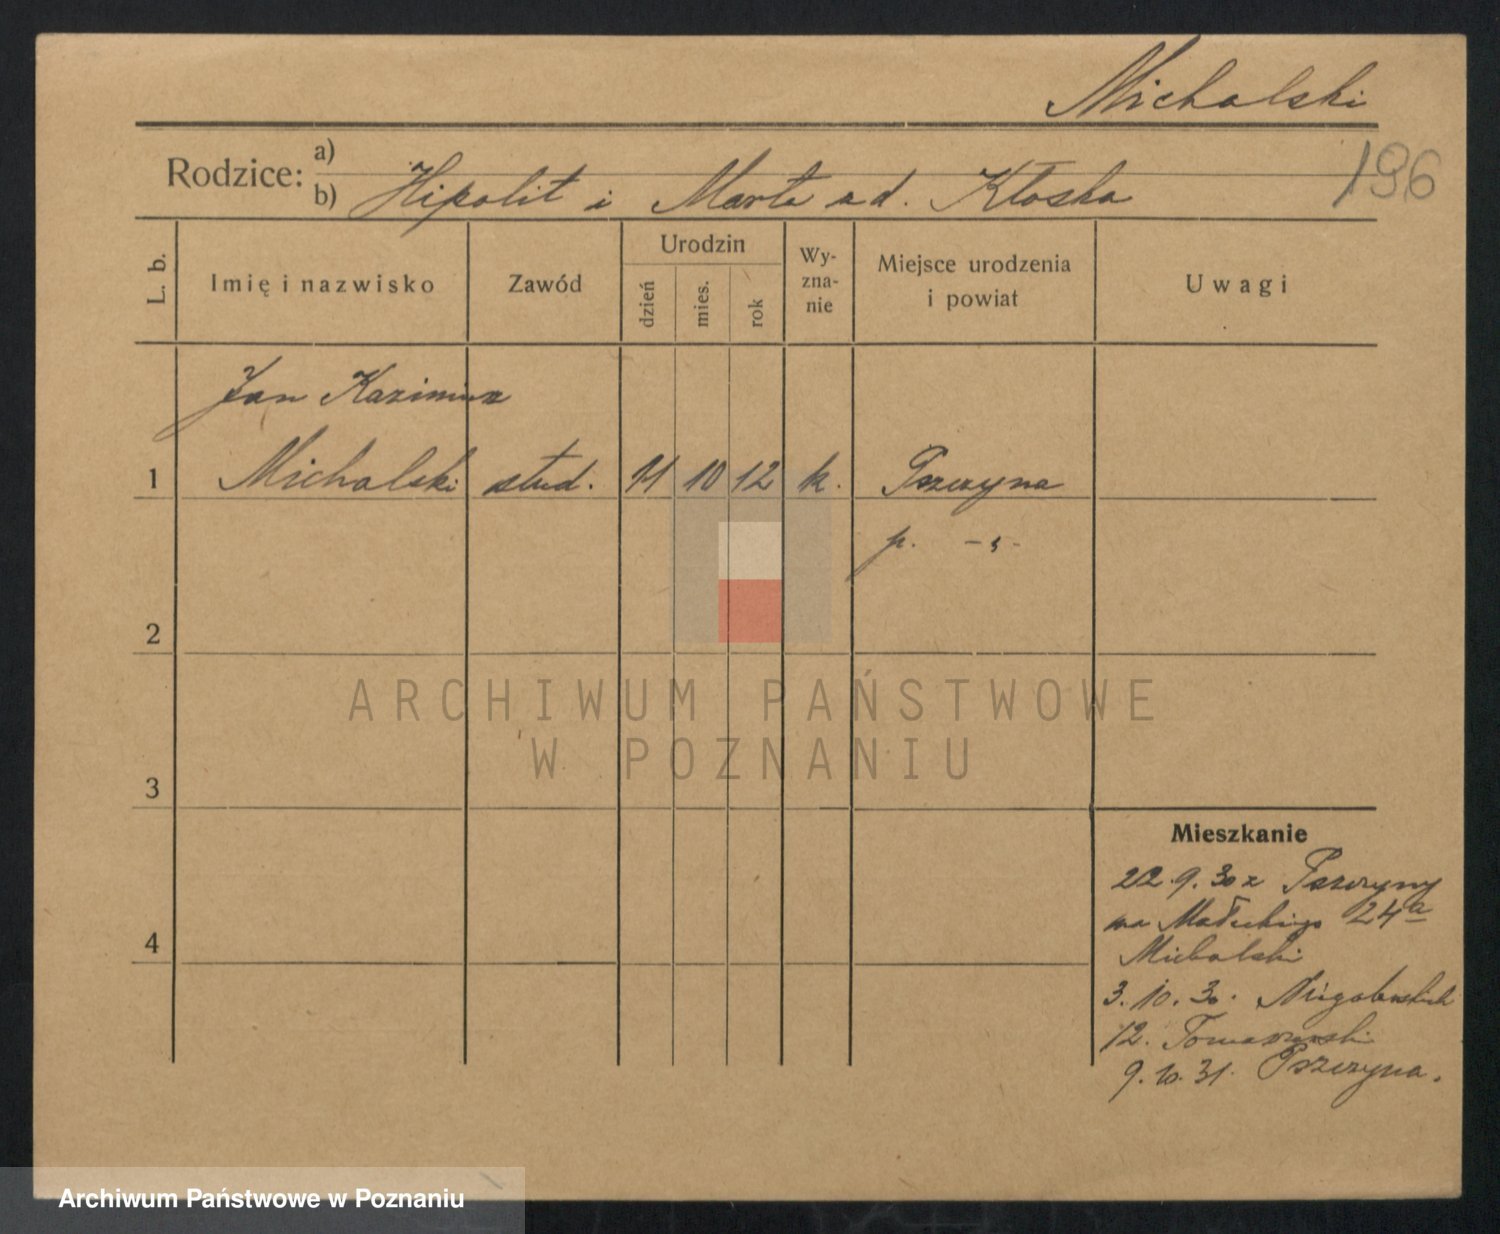 Michalski
196
Rodzice: a)
b) Hipolit i Marta z d. Kłoska
L. b. Imię i nazwisko Zawód Urodzin dzień mies. rok Wyzna-nie Miejsce urodzenia i powiat Uwagi
Jan Kazimierz
1 Michalski stud. 11 10 12 k. Pszczyna
p. -„-
2
ARCHIWUM PAŃSTWOWE
W POZNANIU
3
Mieszkanie
22.9.30 z Pszczyny
na Małeckiego 24a
4
Michalski
3.10.30.
12. Tomaszewski
9.10.31. Pszczyna.
Archiwum Państwowe w Poznaniu